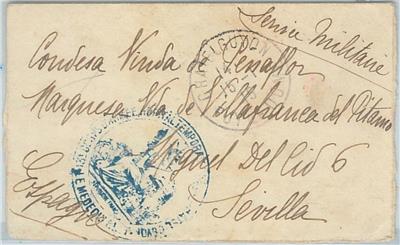 Service Militaire
Condesa Viuda de Peñaflor
Marquesa Vda de Villafranca del Pitamo
Miguel Del Cid 6
Sevilla
Espagne